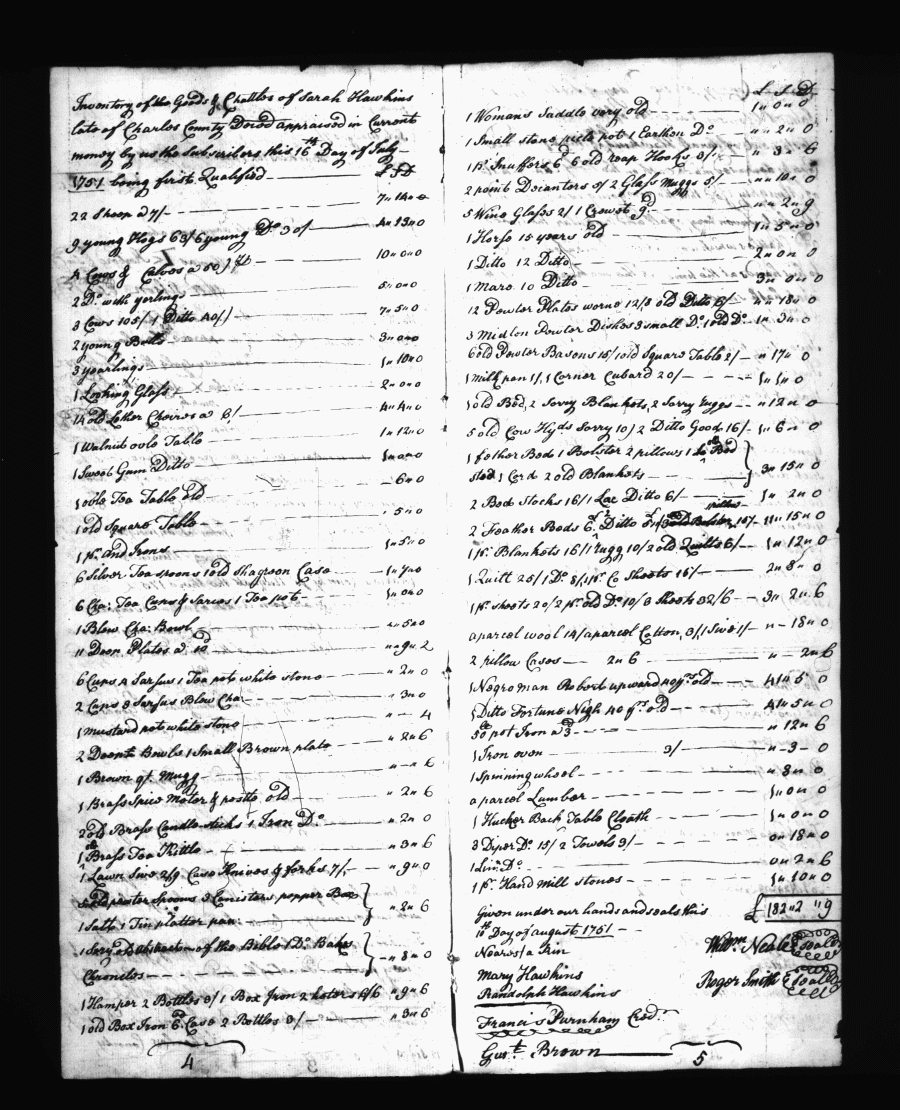 Inventory of the Goods & Chattles of Sarah Hawkins
late of Charles County Decd appraised in Current
money by us the Subscribers this 16th Day of July
1751 being first Qualified £ S D
22 Sheep a 7/ 7 " 14 " 0
9 young Hogs 63/ 6 young Do 30/ 4 " 13 " 0
4 Cows & Calves a 50/ 10 " 0 " 0
2 Do with yerlings 5 " 0 " 0
3 Cows 105/ 1 Ditto 40/ 7 " 5 " 0
2 young Bulls 3 " 0 " 0
3 yearlings 1 " 10 " 0
1 Looking Glass 2 " 0 " 0
14 old Lether Cheires a 6/ 4 " 4 " 0
1 Walnut ovle Table 1 " 12 " 0
1 Sweet Gum Ditto 1 " 0 " 0
1 ovle Tea Table old " 6 " 0
1 old Square Table " 5 " 0
1 pr And Irons 1 " 5 " 0
6 Silver Tea spoons 1 old Shagreen Case 1 " 7 " 0
6 Cha: Tea Cups & Sarses 1 Tea pot 1 " 0 " 0
1 Blew Cha: Bowl " 5 " 0
11 Deep Plates a 10d " 9 " 2
6 Cups 4 Sarsus 1 Tea pot white stone " 2 " 0
2 Cups 3 Sarsus Blew Cha: " 3 " 0
1 mustard pot white stone " - 4
2 Bowls 1 Small Brown plate " 2 " 6
1 Brown qt Mugg " " 6
1 Brass Spice Moter & pestle old " 2 " 6
2 old Brass Candlesticks 1 Iron Do " 2 " 0
1 old Brass Tea Kittle " 3 " 6
1 Lawn Sive 2/9 Case Knives & forks 7/ " 9 " 0
Spoons 3 Canisters popper Box
1 Tin platter pan " 2 " 6
of the Bible 1 Do Bakers
Chronicles " 8 " 0
1 Hamper 2 Bottles 3/ 1 Box Iron 2 heters 6/6 " 9 " 6
1 old Box Iron 6d Case 2 Bottles 3/ " 3 " 6
4
£ S D
1 Womans Saddle very old 1 " 0 " 0
1 Small stone pickle pot 1 Earthen Do " 2 " 0
1 pr Snuffers 6d 6 old reap Hooks 3/ " 3 " 6
2 point Decanters 5/ 2 Glass Muggs 5/ " 10 " 0
5 Wine Glasses 2/ 1 Crewet 9d " 2 " 9
1 Horse 15 years old 1 " 5 " 0
1 Ditto 12 Ditto 2 " 0 " 0
1 Mare 10 Ditto 3 " 0 " 0
12 Pewter Plates worne 12/ 8 old Ditto 6/ " 18 " 0
3 Midlen Pewter Dishes 3 small Do 1 old Do 1 " 3 " 0
6 old Pewter Basons 15/ 1 old Square Table 2/ " 17 " 0
1 milk pan 1/ 1 Corner Cubard 20/ 1 " 1 " 0
1 old Bed, 2 Sorry Blankets, 2 Sorry Ruggs " 12 " 0
5 old Cow Hyds Sorry 10/ 2 Ditto Good 16/ 1 " 6 " 0
1 fether Bed 1 Bolster 2 pillows 1 Bed
sted 1 Cord 2 old Blankets 3 " 15 " 0
2 Bed Stocks 16/ 1 Lar Ditto 6/ 1 " 2 " 0
2 Feather Beds Ditto old Bolster 11 " 15 " 0
1 pr Blankets 16/ 1 rugg 10/ 2 old Quilts 6/ 1 " 12 " 0
1 Quilt 25/ 1 Do 8/ 1 pr Co Sheets 15/ 2 " 8 " 0
1 pr sheets 20/ 2 pr old Do 10/ 3 Sheets 32/6 3 " 2 " 6
a parcel wool 14/ a parcel Cotton 3/ 1 Sive 1/ " 18 " 0
2 pillow Cases 2 " 6 " 2 " 6
1 Negro man Robert upward 40 yrs old 41 " 5 " 0
1 Ditto Fortune Nigh 40 yrs old 41 " 5 " 0
50 pot Iron a 3 " 12 " 6
1 Iron oven 3/ " 3 " 0
1 Spinning wheel " 8 " 0
a parcel Lumber 1 " 0 " 0
1 Hucker Back Table Cloath 1 " 0 " 0
3 Diper Do 15/ 2 Towels 3/ 0 " 18 " 0
1 Linn Do 0 " 2 " 6
1 pr Hand Mill stones 1 " 10 " 0
Given under our hands and seals this £ 182 " 2 " 9
10th Day of august 1751
Nearest a Kin Willm Neale (Seald)
Mary Hawkins
Randolph Hawkins Roger Smith (Seald)
Francis Purnham Credr
Gust Brown
5